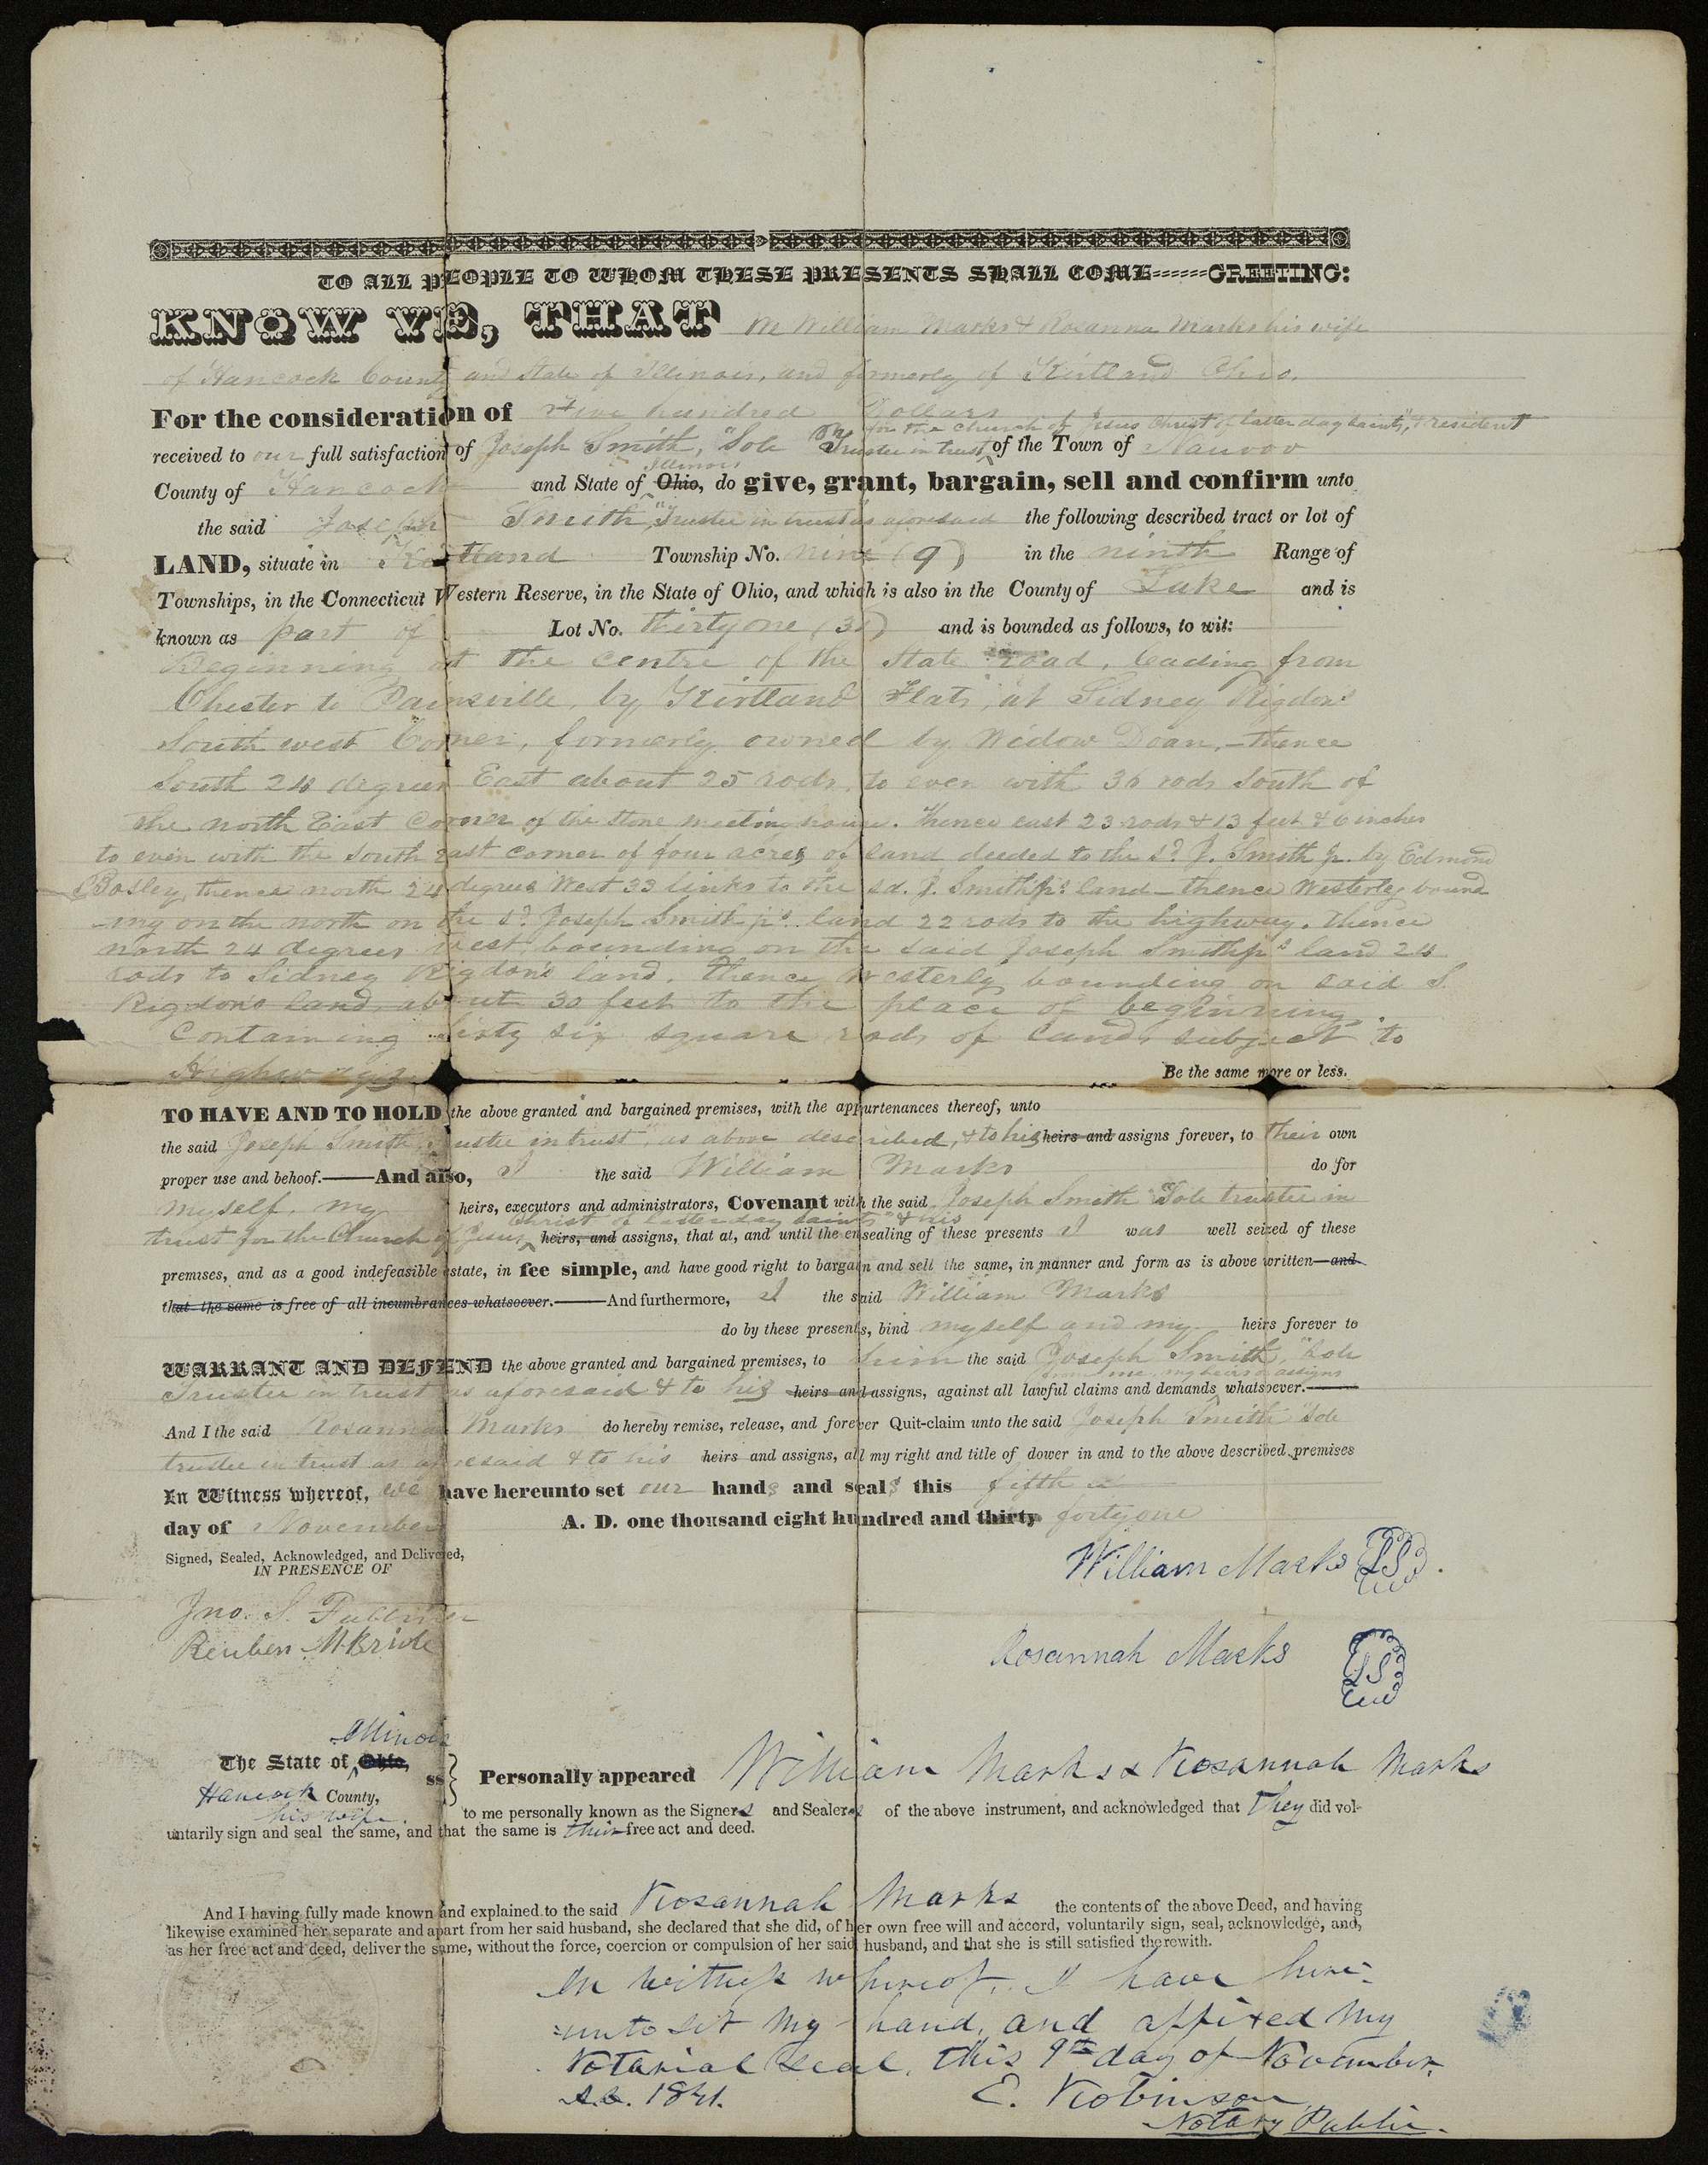 TO ALL PEOPLE TO WHOM THESE PRESENTS SHALL COME------GREETING:
KNOW YE, THAT We William Marks & Rosanna Marks his wife
of Hancock County and State of Illinois, and formerly of Kirtland Ohio.
For the consideration of Five hundred Dollars
for the Church of Jesus Christ of latter day saints", & resident
received to our full satisfaction of Joseph Smith, "Sole Trustee in trust of the Town of Nauvoo
Illinois
County of Hancock and State of Ohio, do give, grant, bargain, sell and confirm unto
the said Joseph Smith, "Trustee in trust as aforesaid the following described tract or lot of
LAND, situate in Kirtland Township No. nine (9) in the ninth Range of
Townships, in the Connecticut Western Reserve, in the State of Ohio, and which is also in the County of Lake and is
known as part of Lot No. thirty one (31) and is bounded as follows, to wit:
Beginning at the centre of the State road, leading from
Chester to Painsville, by Kirtland Flats, at Sidney Rigdon's
South west Corner, formerly owned by Widow Doan, – thence
South 24 degrees East about 25 rods, to even with 30 rods South of
the north East Corner of the stone meeting house. Thence east 23 rods & 13 feet & 6 inches
to even with the south east corner of four acres of land deeded to the sd. J. Smith jr. by Edmond
Bosley, thence north 24 degrees West 33 links to the sd. J. Smith jr's land – thence Westerly bound
-ing on the north on the sd. Joseph Smith jr's land 22 rods to the highway. Thence
north 24 degrees west, bounding on the said Joseph Smith jr's land 24
rods to Sidney Rigdon's land, thence Westerly bounding on said S.
Rigdon's land, about 30 feet to the place of beginning.
Containing sixty six square rods of land, subject to
Highways Be the same more or less.
TO HAVE AND TO HOLD the above granted and bargained premises, with the appurtenances thereof, unto
the said Joseph Smith, "Trustee in trust", as above described, & to his heirs and assigns forever, to their own
proper use and behoof.——And also, I the said William Marks do for
myself, my heirs, executors and administrators, Covenant with the said Joseph Smith "Sole trustee in
Christ of latter day saints" & his
trust for the Church of Jesus heirs, and assigns, that at, and until the ensealing of these presents I was well seized of these
premises, and as a good indefeasible estate, in fee simple, and have good right to bargain and sell the same, in manner and form as is above written—and
that the same is free of all incumbrances whatsoever.——And furthermore, I the said William Marks
do by these presents, bind myself and my heirs forever to
WARRANT AND DEFEND the above granted and bargained premises, to him the said Joseph Smith, "Sole
from me, my heirs & assigns
Trustee in trust as aforesaid & to his heirs and assigns, against all lawful claims and demands whatsoever.——
And I the said Rosanna Marks do hereby remise, release, and forever Quit-claim unto the said Joseph Smith "Sole
trustee in trust as aforesaid & to his heirs and assigns, all my right and title of dower in and to the above described premises
In Witness whereof, we have hereunto set our hands and seals this fifth
day of November A. D. one thousand eight hundred and thirty forty one
Signed, Sealed, Acknowledged, and Delivered,
IN PRESENCE OF
William Marks LS
Jno. S. Fullmer
Reuben McBride
Rosannah Marks LS
Illinois
The State of Ohio,
Hancock County, ss Personally appeared William Marks & Rosannah Marks
his wife to me personally known as the Signers and Sealers of the above instrument, and acknowledged that they did vol-
untarily sign and seal the same, and that the same is their free act and deed.
And I having fully made known and explained to the said Rosannah Marks the contents of the above Deed, and having
likewise examined her separate and apart from her said husband, she declared that she did, of her own free will and accord, voluntarily sign, seal, acknowledge, and,
as her free act and deed, deliver the same, without the force, coercion or compulsion of her said husband, and that she is still satisfied therewith.
In witness whereof, I have here-
=unto set my hand, and affixed my
Notarial Seal, this 9th day of November,
A.D. 1841.
E. Robinson
Notary Public.